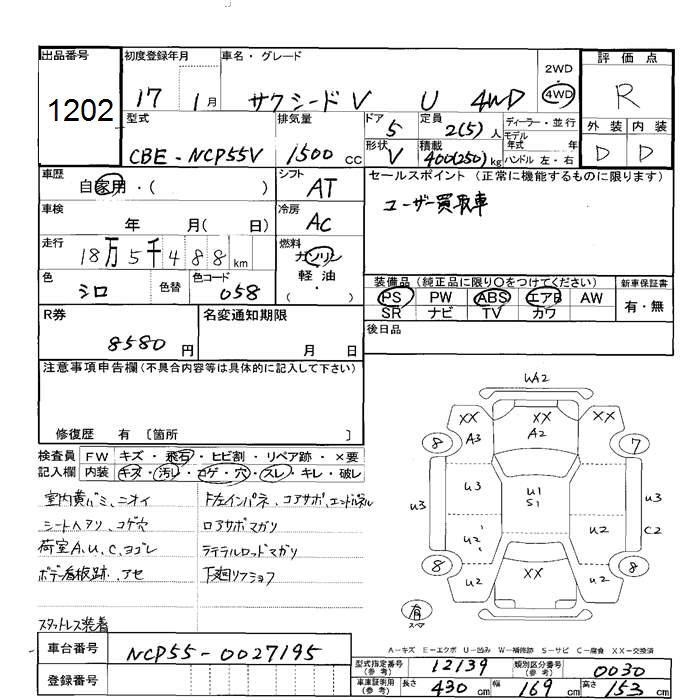 出品番号
1202
初度登録年月
17 1月
車名・グレード
サクシードV U 4WD
2WD
・
4WD
評価点
R
外装 内装
D D
型式
CBE-NCP55V
排気量
1500 cc
ドア
5
形状
V
定員
2(5)人
積載
400(250)kg
ディーラー・並行
モデル
年式 年
ハンドル 左・右
車歴
自家用・( )
シフト
AT
車検
年 月( 日)
冷房
AC
走行
18万5千488km
燃料
ガソリン
軽油
( ・ )
色
シロ
色替
色コード
058
セールスポイント (正常に機能するものに限ります)
ユーザー買取車
装備品 (純正品に限り○をつけてください)
PS PW ABS エアB AW
SR ナビ TV カワ
新車保証書
有・無
R券
8580円
名変通知期限
月 日
後日品
注意事項申告欄(不具合内容等は具体的に記入して下さい)
修復歴 有 〔箇所 〕
検査員
記入欄
FW キズ・飛石・ヒビ割・リペア跡・×要
内装 キズ・汚レ・コゲ・穴・スレ・キレ・破レ
室内黄バミ、ニオイ
シートヘタリ、コゲ穴
荷室A、U、C、ヨゴレ
ボデ看板跡、アセ
スタットレス装着
下左インパネ、コアサポ、エンドパネル
ロアサポマガリ
ラテラルロッドマガリ
下廻リフショフ
WA2
XX XX XX
A3 A2
8 7
U3 U3 U1 S1 U3
C2
U2 U2
8 8
U2 XX U2
有
スペア
A-キズ E-エクボ U-凹み W-補修跡 S-サビ C-腐食 XX-交換済
車台番号
NCP55-0027195
登録番号
型式指定番号
(参考)
12139
類別区分番号
(参考)
0030
車庫証明用
(参考)
長さ 430cm 幅 169cm 高さ 153cm